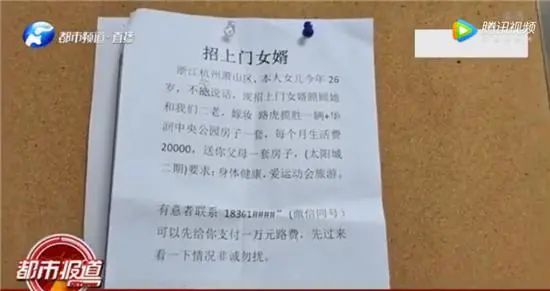 都市频道·直播
腾讯视频
招上门女婿
浙江杭州萧山区、本人女儿今年26
岁,不能说话,现招上门女婿照顾她
和我们二老。嫁妆 路虎揽胜一辆+华
润中央公园房子一套,每个月生活费
20000,送你父母一套房子,(太阳城
二期)要求:身体健康,爱运动会旅游。
有意者联系 18361####”(微信同号)
可以先给你支付一万元路费,先过来
看一下情况非诚勿扰。
都市报道